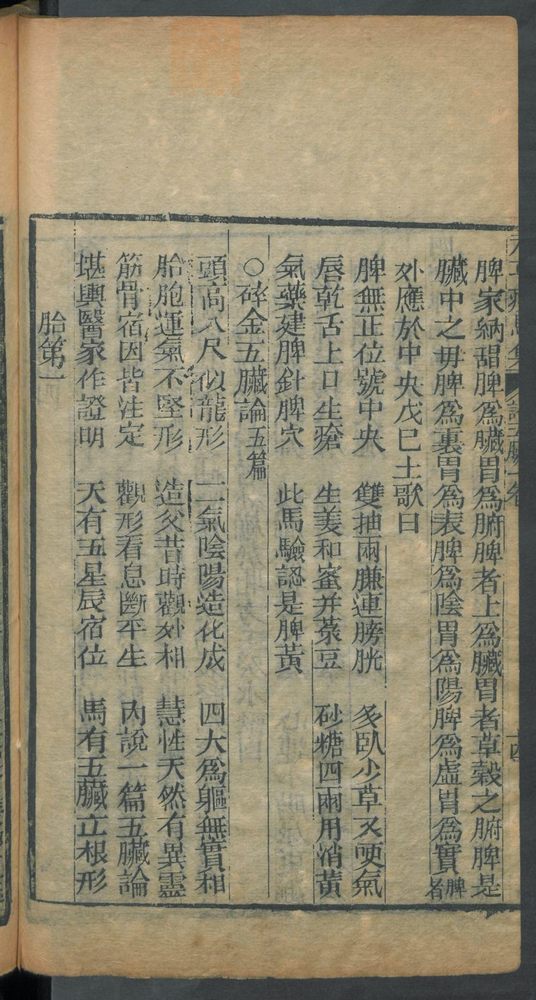 脾家納甜脾為臟胃為腑脾者土為臟胃者草穀之腑脾是
臟中之毋脾為裏胃為表脾為陰胃為陽脾為虛胃為實脾者
外應於中央戊巳土歌曰
脾無正位號中央　雙抽兩膁連膀胱　多臥少草又哽氣
唇乾舌上口生瘡　生姜和蜜并菉豆　砂糖四兩用消黃
氣藥建脾針脾穴　此馬驗認是脾黃
○碎金五臟論五篇
頭高八尺似龍形　二氣陰陽造化成　四大為軀無實相
胎胞運氣不堅形　造父昔時觀外相　慧性天然有異靈
筋骨宿因皆注定　觀形看息斷平生　內說一篇五臟論
堪輿醫家作證明　天有五星辰宿位　馬有五臟立根形
胎第一